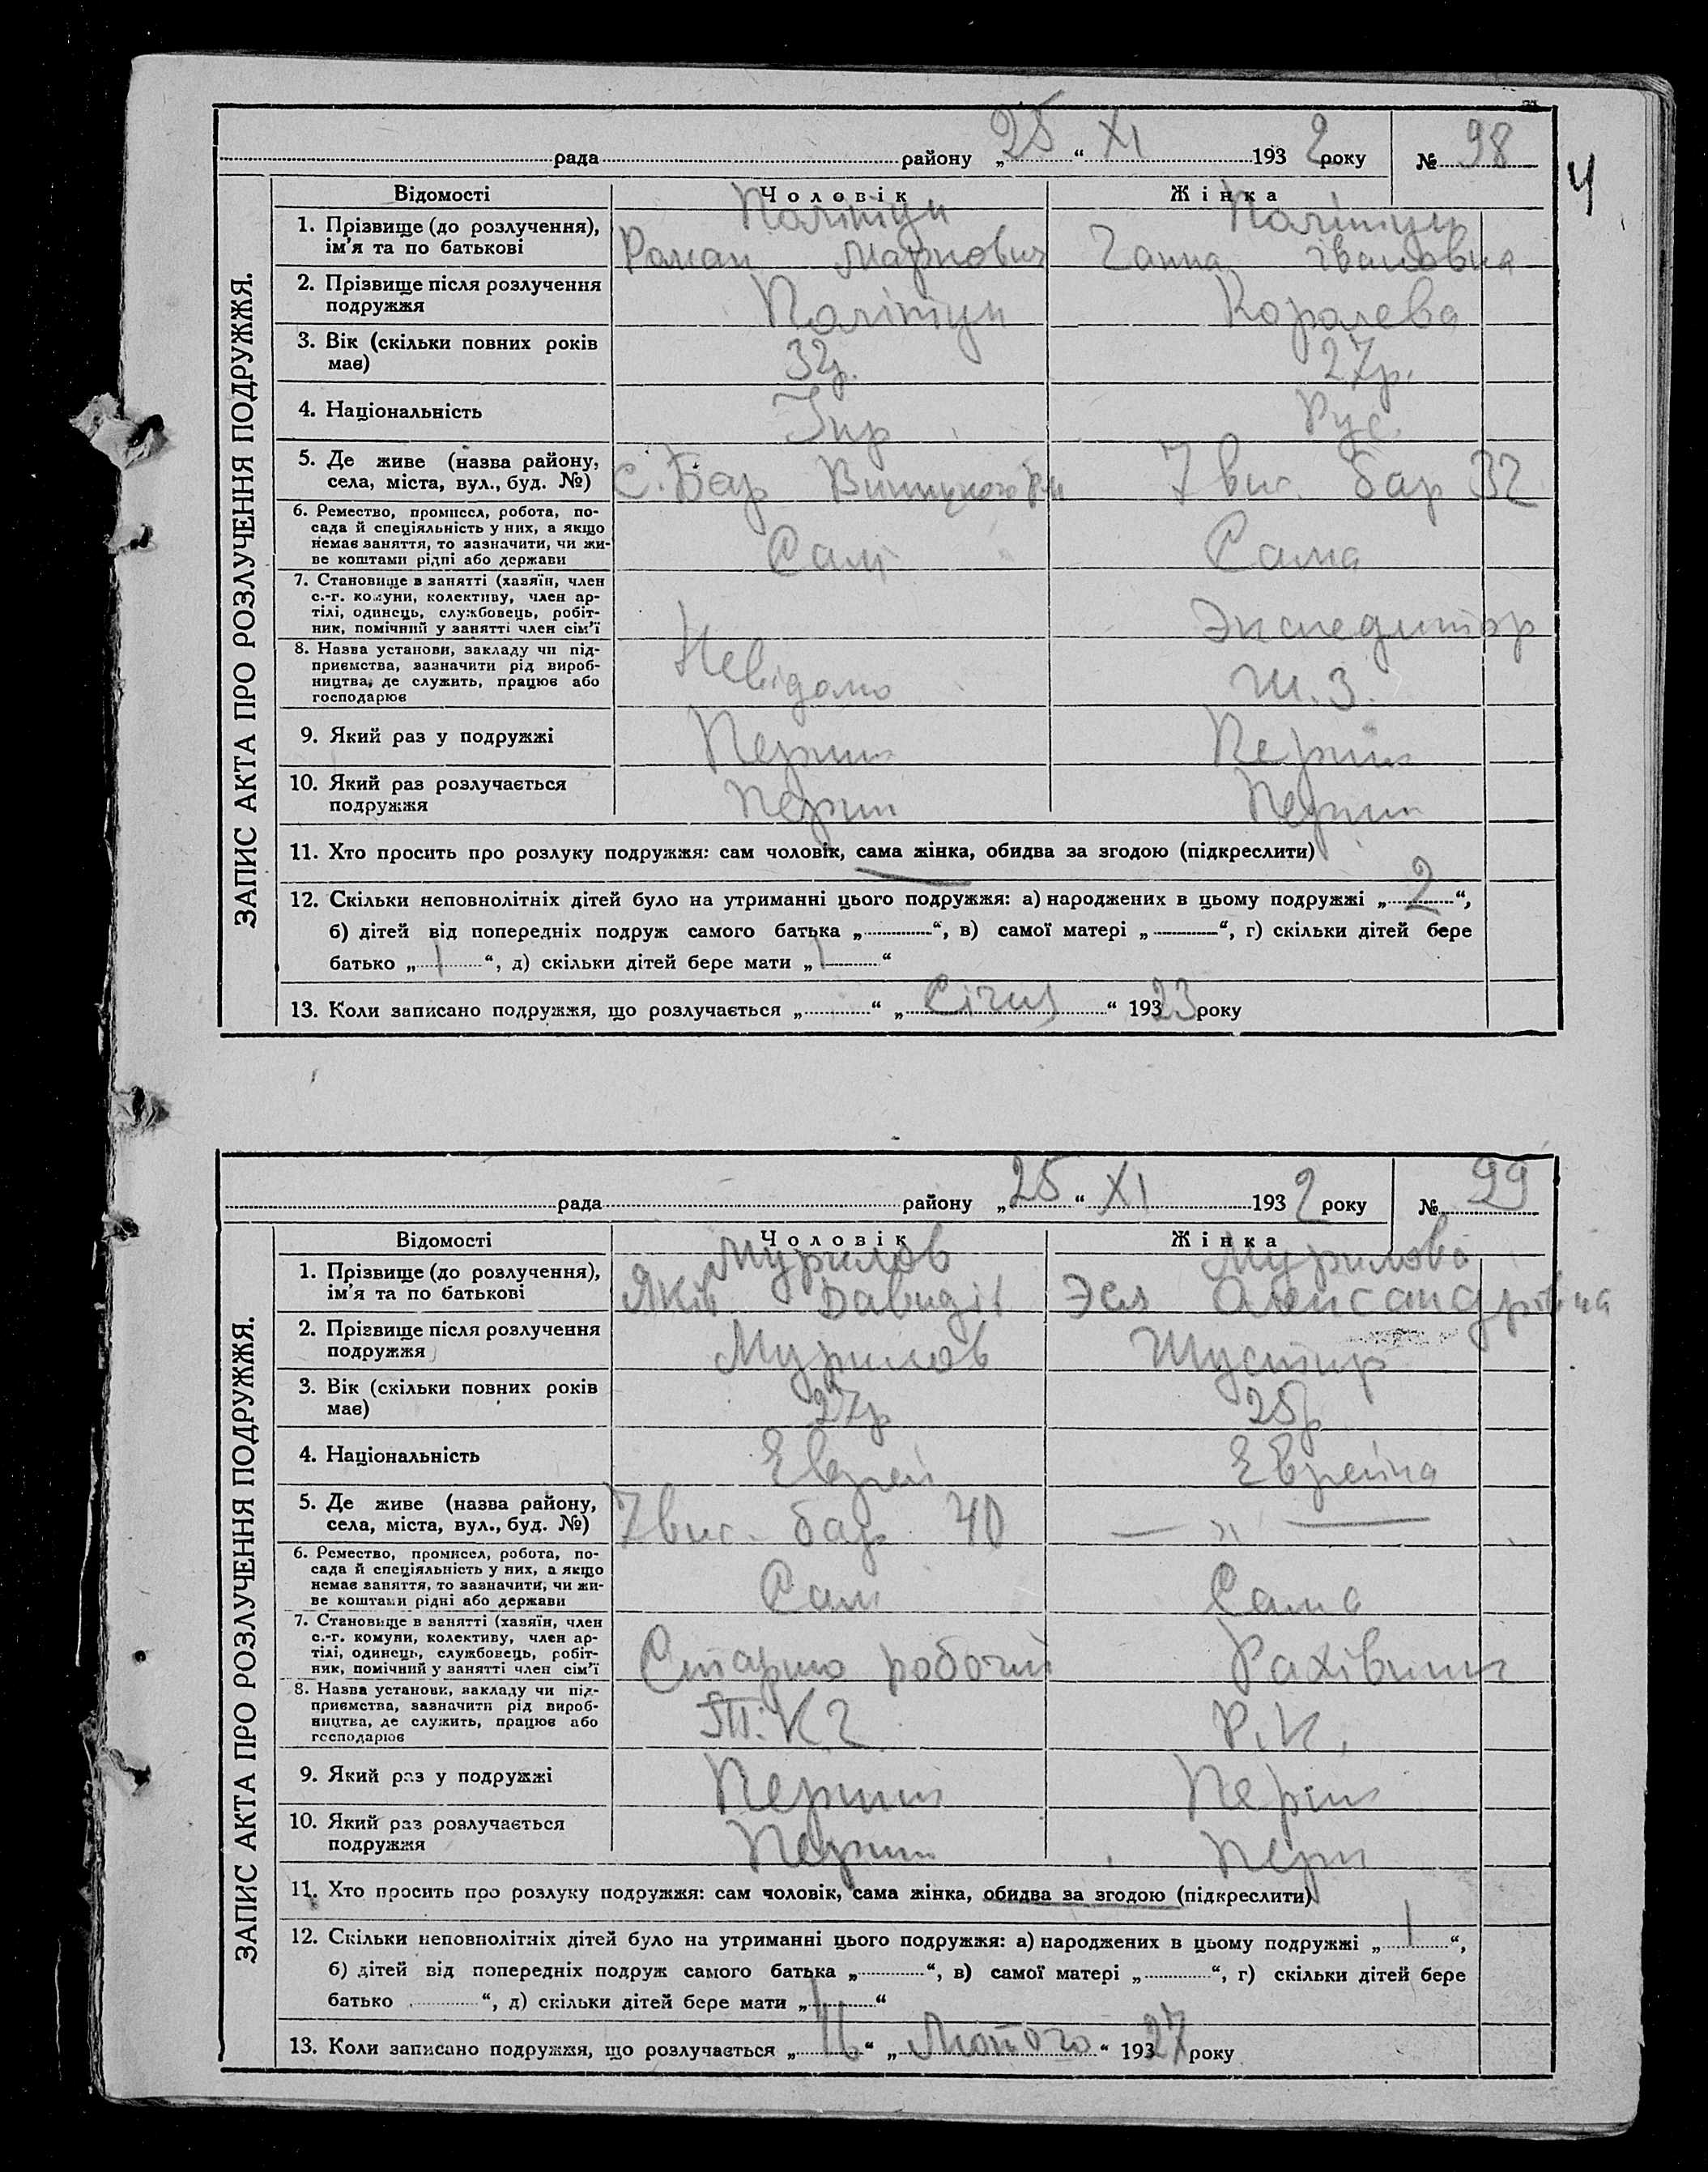 рада района „25“ XI 1932 року № 98
4
ЗАПИС АКТА ПРО РОЗЛУЧЕННЯ ПОДРУЖЖЯ.
Відомості Чоловік Жінка
1. Прізвище (до розлучення), ім'я та по батькові
Роман Маркович Ганна Івановна
2. Прізвище після розлучення подружжя
Коралева
3. Вік (скільки повних років має) 32р. 27р.
4. Національність Укр Рус.
5. Де живе (назва району, села, міста, вул., буд. №) с. Бар 7 вис. бар 32
6. Ремество, промисел, робота, по-
сада й спеціяльність у них, а якщо
немає заняття, то зазначити, чи жи-
ве коштами рідні або держави Сам Сама
7. Становище в занятті (хазяїн, член
с.-г. комуни, колективу, член ар-
тілі, одинець, службовець, робіт-
ник, помічний у занятті член сім'ї Экспедитор
8. Назва установи, закладу чи під-
приємства, зазначити рід вироб-
ництва, де служить, працює або
господарює Невідомо Ш. З.
9. Який раз у подружжі Перший Перший
10. Який раз розлучається
подружжя Перши Перши
11. Хто просить про розлуку подружжя: сам чоловік, сама жінка, обидва за згодою (підкреслити)
12. Скільки неповнолітніх дітей було на утриманні цього подружжя: а) народжених в цьому подружжі „2“,
б) дітей від попередніх подруж самого батька „ “, в) самої матері „ “, г) скільки дітей бере
батько „1“, д) скільки дітей бере мати „1“
13. Коли записано подружжя, що розлучається „ “ „Січня“ 19323 року
рада району „25“ XI 1932 року № 99
ЗАПИС АКТА ПРО РОЗЛУЧЕННЯ ПОДРУЖЖЯ.
Відомості Чоловік Жінка
Мурилов Мурилова
1. Прізвище (до розлучення),
ім'я та по батькові Яків Давидів Александрівна
2. Прізвище після розлучення
подружжя Мурилов Шустир
3. Вік (скільки повних років
має) 27р 25р
4. Національність Еврей Еврейка
5. Де живе (назва району,
села, міста, вул., буд. №) 7 вис. бар 40 — „ —
6. Ремество, промисел, робота, по-
сада й спеціяльність у них, а якщо
немає заняття, то зазначити, чи жи-
ве коштами рідні або держави Сам Сама
7. Становище в занятті (хазяїн, член
с.-г. комуни, колективу, член ар-
тілі, одинець, службовець, робіт-
ник, помічний у занятті член сім'ї робочий Рахівник
8. Назва установи, закладу чи під-
приємства, зазначити рід вироб-
ництва, де служить, працює або
господарює Р.К.
9. Який раз у подружжі Перший Перший
10. Який раз розлучається
подружжя Перши Перш
11. Хто просить про розлуку подружжя: сам чоловік, сама жінка, обидва за згодою (підкреслити)
12. Скільки неповнолітніх дітей було на утриманні цього подружжя: а) народжених в цьому подружжі „1“,
б) дітей від попередніх подруж самого батька „ “, в) самої матері „ “, г) скільки дітей бере
батько „ “, д) скільки дітей бере мати „1“
13. Коли записано подружжя, що розлучається „16“ „Лютого“ 19327 року